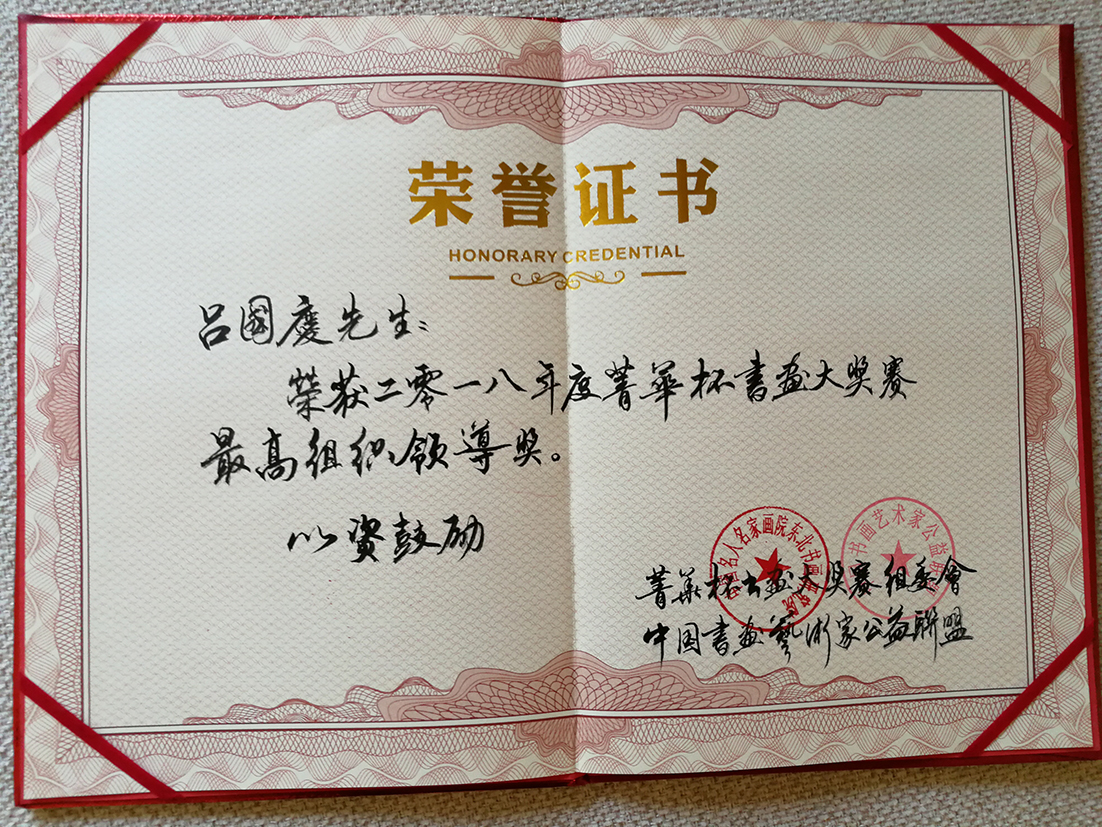 荣誉证书
HONORARY CREDENTIAL
吕國慶先生：
榮获二零一八年度菁華杯书畫大奖赛
最高组织领導奖。
以资鼓励
名人名家画院东北书画研究院
书画艺术家公益联盟
菁華杯书畫大奖赛组委會
中国書畫藝術家公益聯盟